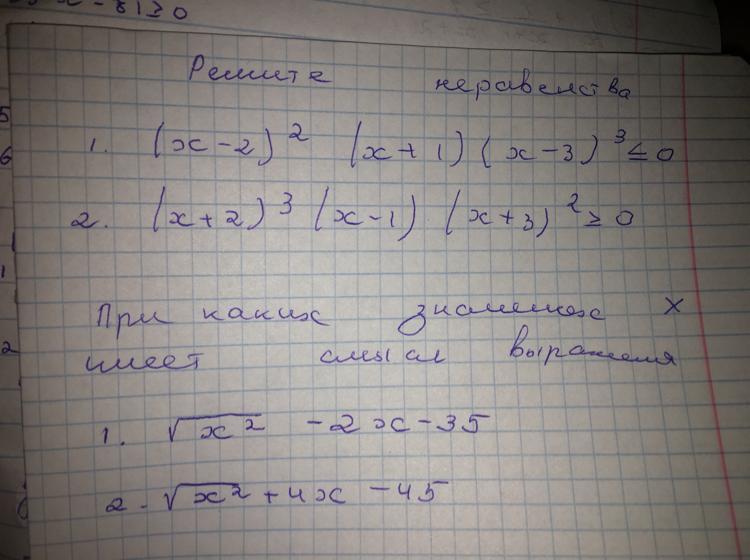 х - 81 ≥ 0
Решите неравенства
1. (x-2)² (x+1) (x-3)³ ≤ 0
2. (x+2)³ (x-1) (x+3)² ≥ 0
При каких значениях х
имеет смысл выражения
1. √x² - 2x - 35
2. √x² + 4x - 45
5
6
1
2